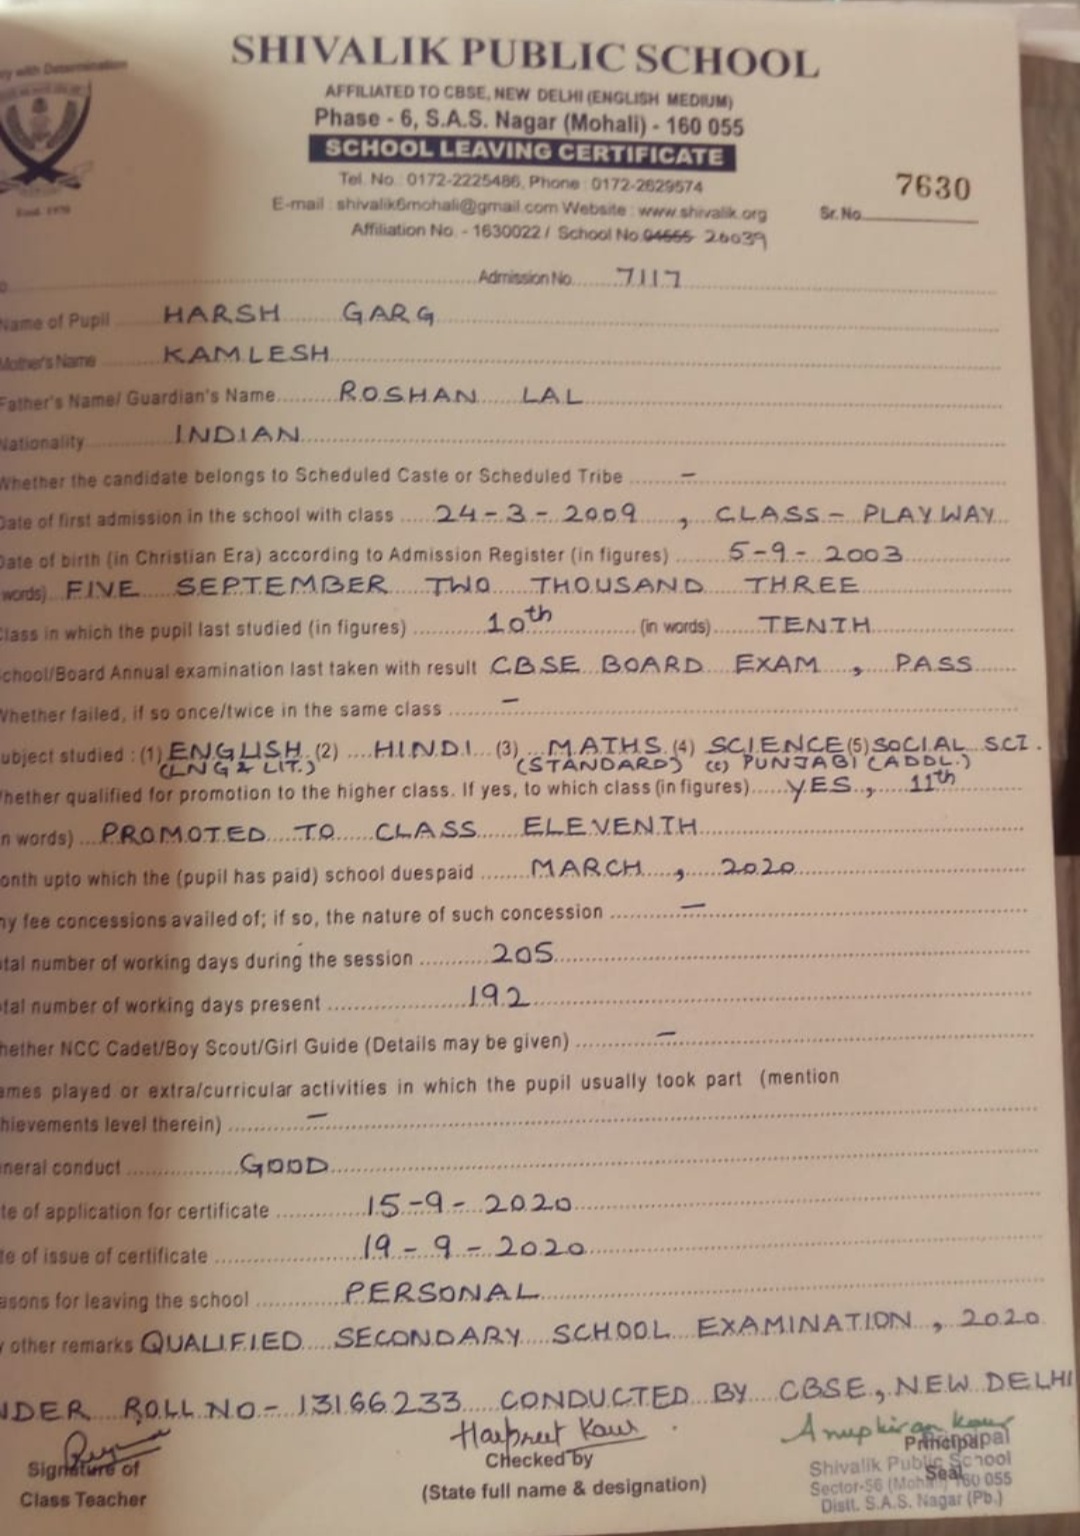 ry with Determination
SHIVALIK PUBLIC SCHOOL
AFFILIATED TO CBSE, NEW DELHI (ENGLISH MEDIUM)
Phase - 6, S.A.S. Nagar (Mohali) - 160 055
SCHOOL LEAVING CERTIFICATE
Tel. No.: 0172-2225486, Phone : 0172-2629574
7630
E-mail : shivalik6mohali@gmail.com Website : www.shivalik.org
Sr. No.
Estd. 1970
Affiliation No. - 1630022 / School No. 04555 26039
Admission No. 7117
Name of Pupil HARSH GARG
Mother's Name KAMLESH
Father's Name/ Guardian's Name ROSHAN LAL
Nationality INDIAN
Whether the candidate belongs to Scheduled Caste or Scheduled Tribe –
Date of first admission in the school with class 24-3-2009, CLASS - PLAYWAY
Date of birth (in Christian Era) according to Admission Register (in figures) 5-9-2003
words) FIVE SEPTEMBER TWO THOUSAND THREE
Class in which the pupil last studied (in figures) 10th (in words) TENTH
School/Board Annual examination last taken with result CBSE BOARD EXAM, PASS
Whether failed, if so once/twice in the same class –
ubject studied : (1) ENGLISH (2) HINDI (3) MATHS (4) SCIENCE (5) SOCIAL SCI.
(LNG & LIT.) (STANDARD) (6) PUNJABI (ADDL.)
Whether qualified for promotion to the higher class. If yes, to which class (in figures) YES, 11th
n words) PROMOTED TO CLASS ELEVENTH
onth upto which the (pupil has paid) school duespaid MARCH, 2020
ny fee concessions availed of; if so, the nature of such concession –
otal number of working days during the session 205
otal number of working days present 192
hether NCC Cadet/Boy Scout/Girl Guide (Details may be given) –
ames played or extra/curricular activities in which the pupil usually took part (mention
hievements level therein) –
neral conduct GOOD
te of application for certificate 15-9-2020
te of issue of certificate 19-9-2020
asons for leaving the school PERSONAL
y other remarks QUALIFIED SECONDARY SCHOOL EXAMINATION, 2020
NDER ROLL NO - 13166233 CONDUCTED BY CBSE, NEW DELHI
Harpreet Kaur
Anupkiran Kaur
Signature of Checked by Principal Principal
Class Teacher (State full name & designation) Seal
Shivalik Public School
Sector-56 (Mohali) 160 055
Distt. S.A.S. Nagar (Pb.)